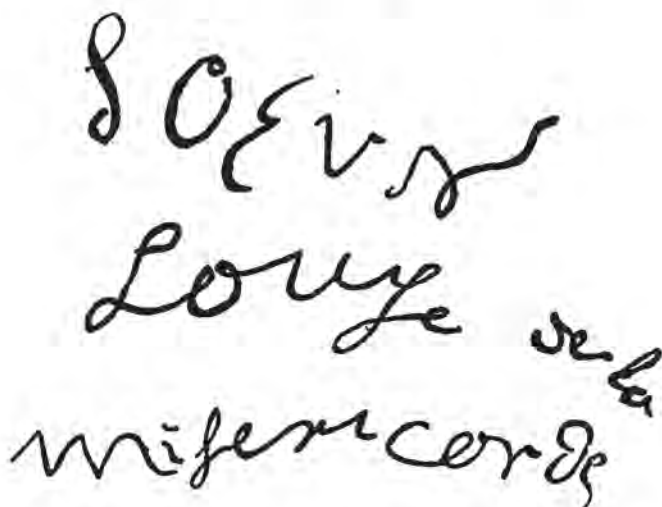 SOEur
Louise de la
misericorde